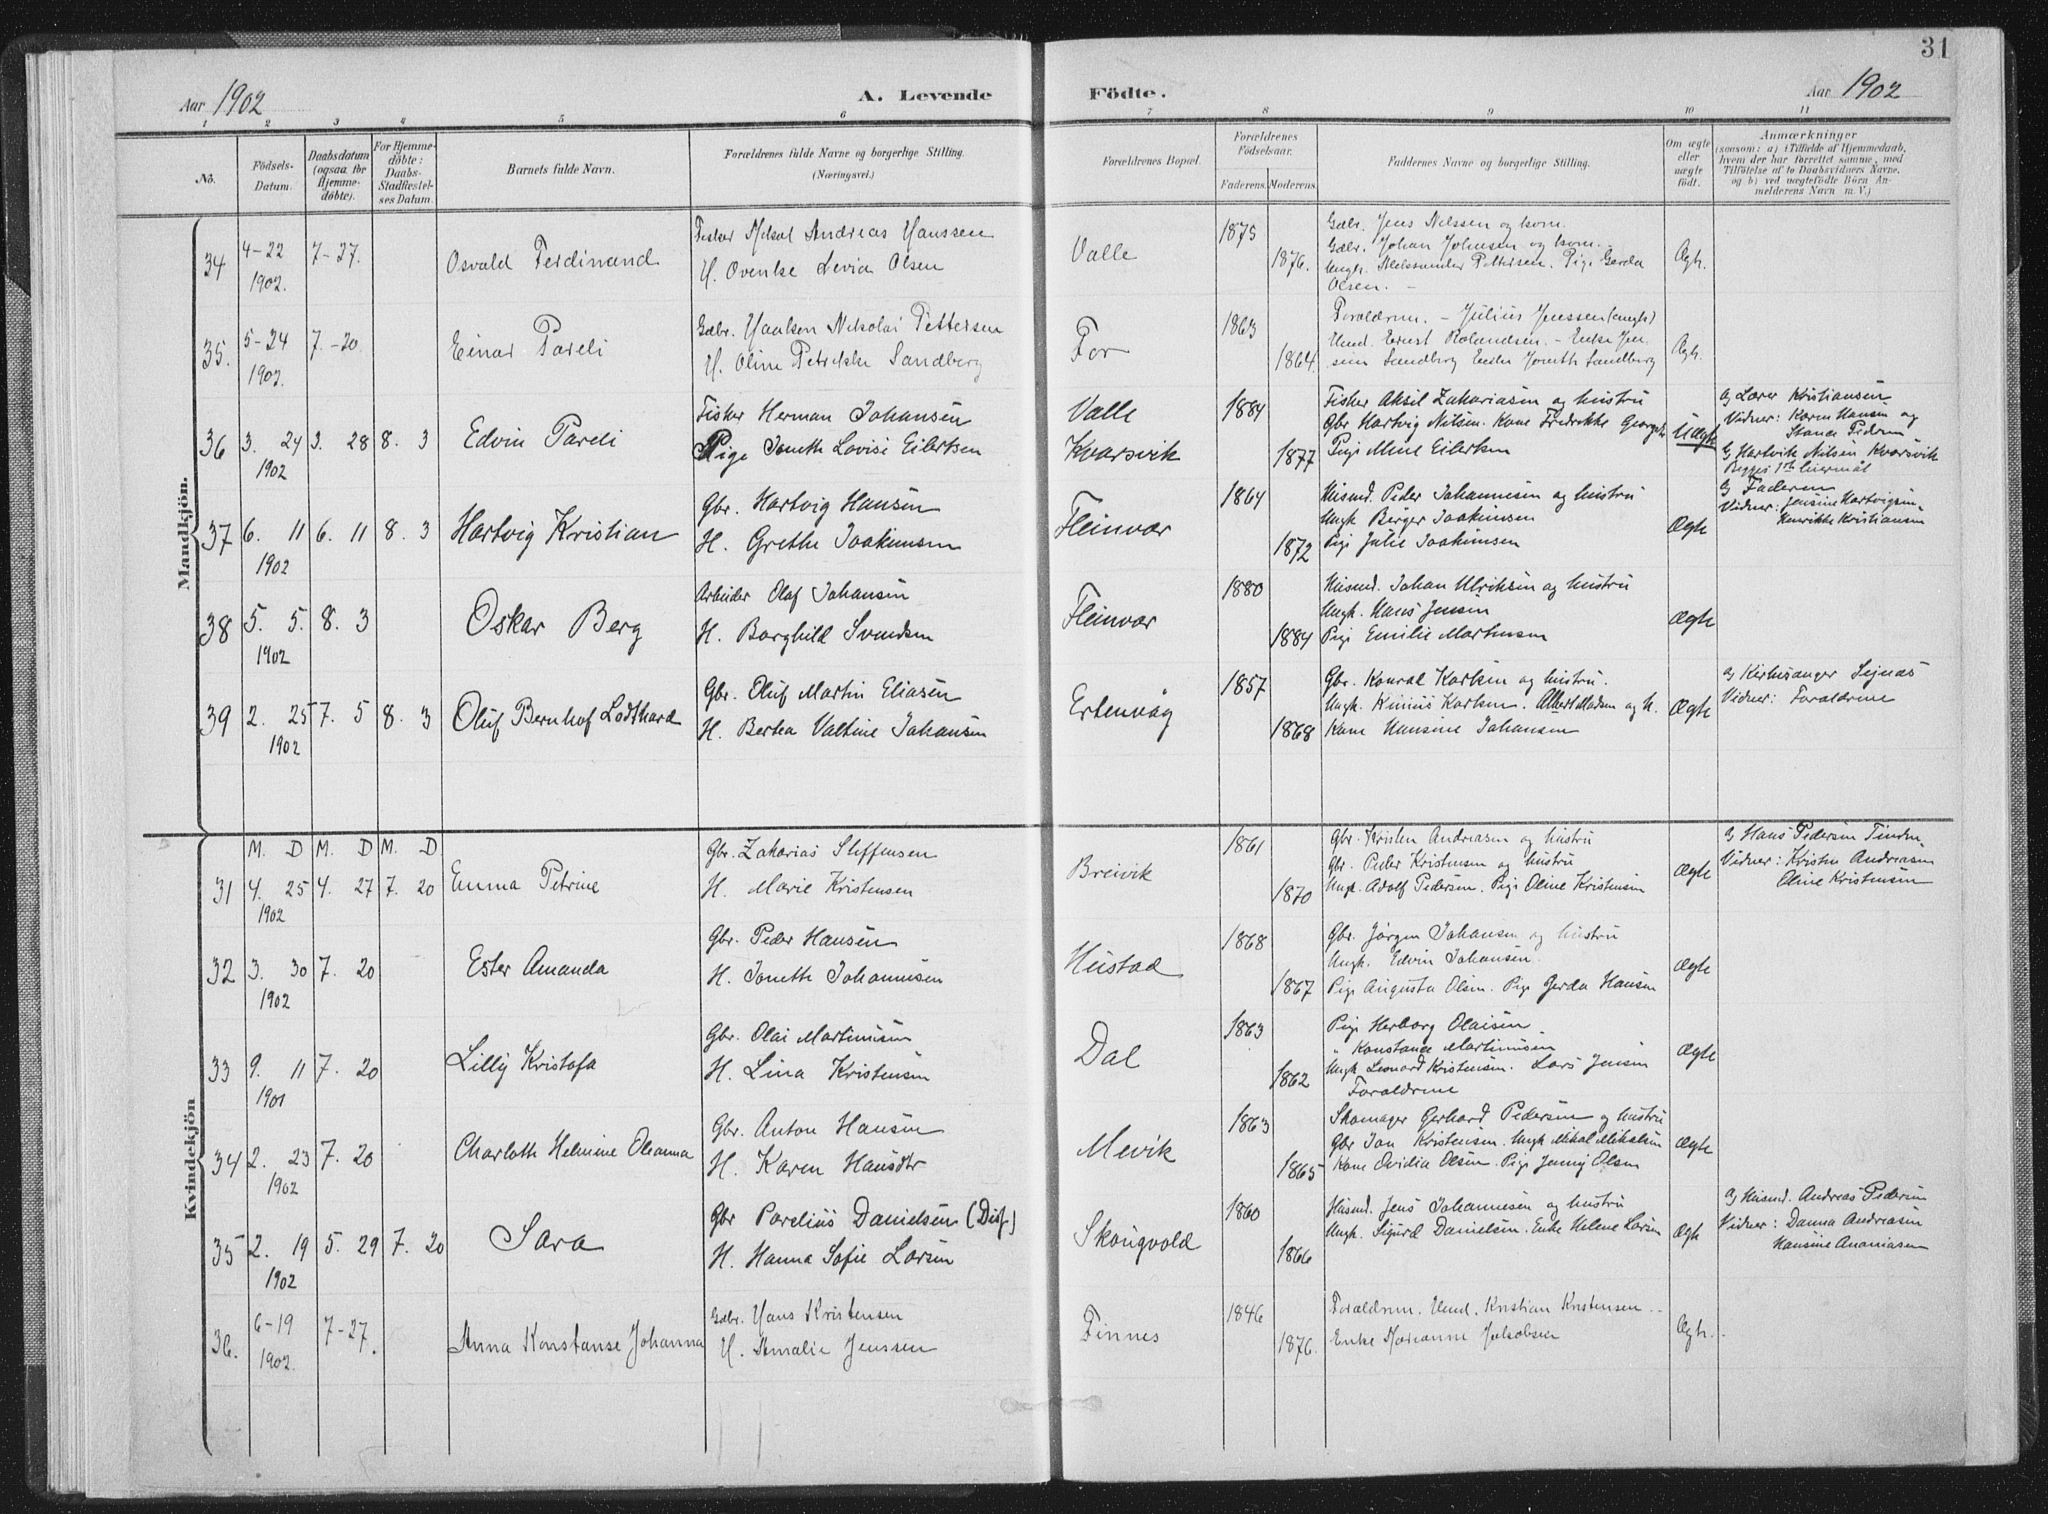 31
Aar 1902
A. Levende
Födte.
Aar 1902
1 2 3 4 5 6 7 8 9 10 11
No.
Födsels-Datum.
Daabsdatum (ogsaa for Hjemmedöbte).
For Hjemmedöbte: Daabs-Stadfæstelses Datum.
Barnets fulde Navn.
Forældrenes fulde Navne og borgerlige Stilling.
(Næringsvei.)
Forældrenes Bopæl.
Forældrenes Födselsaar.
Faderens. Moderens.
Faddernes Navne og borgerlige Stilling.
Om ægte eller uægte födt.
Anmærkninger
(saasom: a) i Tilfælde af Hjemmedaab,
hvem der har forrettet samme, med
Tilföielse af to Daabsvidners Navne,
og b) ved uægtefödte Börn Anmelderens Navn m. V.)
Mandkjön.
34 4-22 1902. 7-27. Osvald Ferdinand
Fisker Mikal Andreas Hanssen
H. Ovenke Levia Olsen
Valle 1875 1876.
Gbr. Jens Nilssen og kone.
Gbr. Johan Johnsen og kone.
Pettersen. Pige Gerda
Olsen. -
Ægte.
35. 5-24 1902. 7.-20 Einar Pareli
Gbr. Haakon Nikolai Pettersen
H. Oline Petrikke Sandberg
For 1863 1864.
Forældrene. - Julius Jenssen (ungk)
Ernst Rolandsen. - Enke
Sandberg Enke Joneth Sandberg
Ægte.
36 3. 24 1902 3. 28 8. 3 Edvin Pareli
Fisker Herman Johansen
Pige Joneth Lovise Eilertsen
Valle
Kvarsvik
1884 1877
Fisker Aksil Zakariasen og hustru
Gbr Hartvig Nilsen. Kone Fredrikke
Pige Mine Eilertsen
Uægte
a) Lærer Kristiansen
Vidner: Karen Hansen og
Pedersen
b) Hartvik Nilsen Kvarsvik
Begges 1ste leiermål
37 6. 11 1902 6. 11 8. 3 Hartvig Kristian
Gbr. Hartvig Hansen
H. Grethe Joakimsen
Fleinvær 1864 1872
Husmd. Peder Johannesen og hustru
Ungk. Birger Joakimsen
Pige Julie Joakimsen
Ægte
a) Faderen
Vidner: Jensine Hartvigsen
Henrikke Kristiansen
38 5. 5. 1902 8. 3 Oskar Berg
Arbeider Olaf Johansen
H. Borghild Svendsen
Fleinvær 1880 1884
Husmd. Johan Ulriksen og hustru
Ungk. Hans Jensen
Pige Emilie Martinsen
Ægte
39 2. 25 1902 7. 5 8. 3 Oluf Bernhof Lodthard
Gbr. Oluf Martin Eliasen
H. Bertea Valtine Johansen
Ertenvåg 1857 1868
Gbr. Konrad Karlsen og hustru.
Ungk. Karlsen. Albert Madsen og h.
Kone Hansine Johansen
Ægte
a) Kirkesanger
Vidner: Forældrene
Kvindekjön
M. D M. D M. D
31 4. 25 1902 4. 27 7. 20 Emma Petrine
Gbr. Zakarias Steffensen
H. Marie Kristensen
Breivik 1861 1870
Gbr. Kristen Andreasen og hustru
Gbr. Peder Kristensen og hustru
Ungk. Adolf Pedersen. Pige Oline Kristensen
Ægte
a) Hans Pedersen Tinden
Vidner: Kristen Andreasen
Oline Kristensen
32 3. 30 1902 7. 20 Ester Amanda
Gbr. Peder Hansen
H. Joneth Johannesen
Hustad 1868 1867
Gbr. Jørgen Johansen og hustru
Ungk. Edvin Johansen.
Pige Augusta Olsen. Pige Gerda Hansen
Ægte
33 9. 11 1901 7. 20 Lilly Kristofa
Gbr. Olai Martinusen
H. Lina Kristensen
Dal 1863 1862
Pige Herborg Olaisen
" Konstance Martinusen
Ungk Leonard Kristensen. Lars Jensen
Forældrene
Ægte
34 2. 23 1902 7. 20 Charloth Helmine Oleanna
Gbr. Anton Hansen
H. Karen Hansdtr
Mevik 1863 1865
Skomager Gerhard Pedersen og hustru
Gbr Jon Kristensen. Ungk Mikal Mikalsen
Kone Ovidia Olsen. Pige Jenny Olsen
Ægte
35 2. 19 1902 5. 29 7. 20 Sara
Gbr Parelius Danielsen (Dis.)
H. Hanna Sofie Larsen
Skaugvold 1860 1866
Husmd. Jens Johannesen og hustru
Ungk. Sigurd Danielsen. Enke Helene Larsen
Ægte
a) Husmd. Andreas Pedersen
Vidner: Danna Andreasen
Hansine Ananiasen
36. 6-19 1902. 7-27. Anna Konstanse Johanna
Gbr. Hans Kristensen
H. Amalie Jenssen
Finnes 1846 1876.
Forældrene. Kristian Kristensen.
Enke Marianne Jakobsen
Ægte.